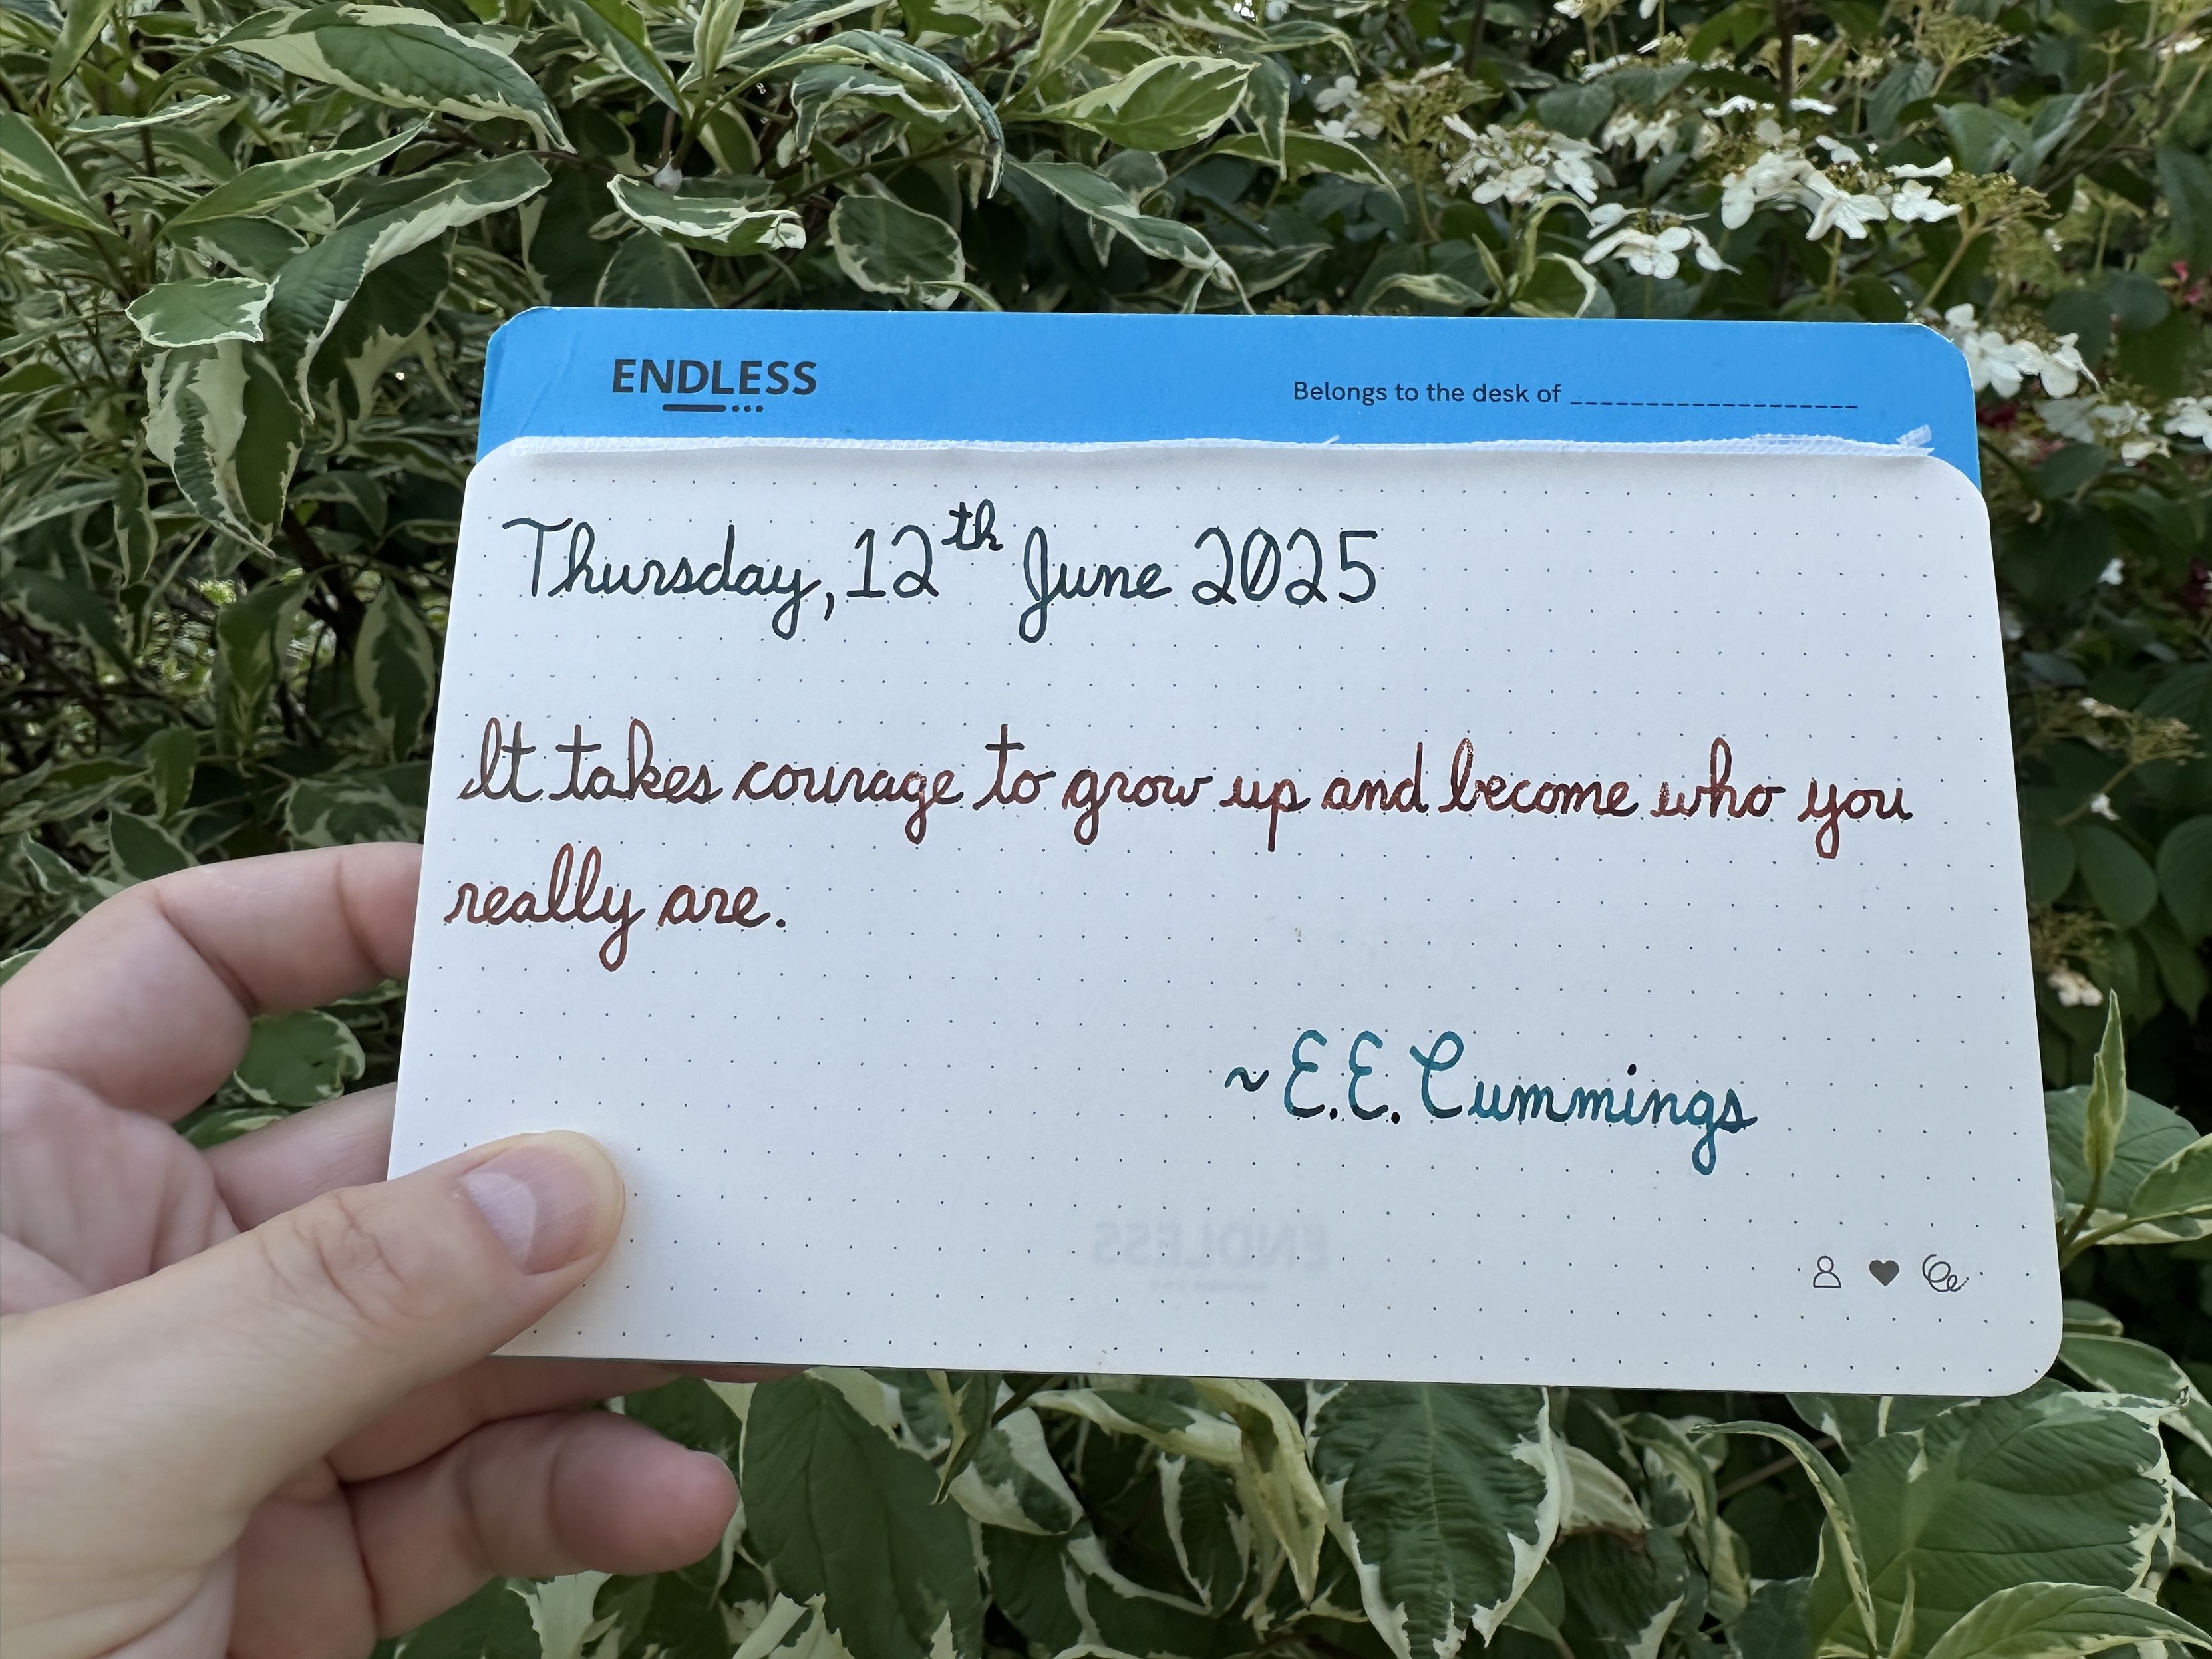 ENDLESS
Belongs to the desk of ___________________
Thursday, 12th June 2025
It takes courage to grow up and become who you
really are.
~E.E. Cummings
ENDLESS